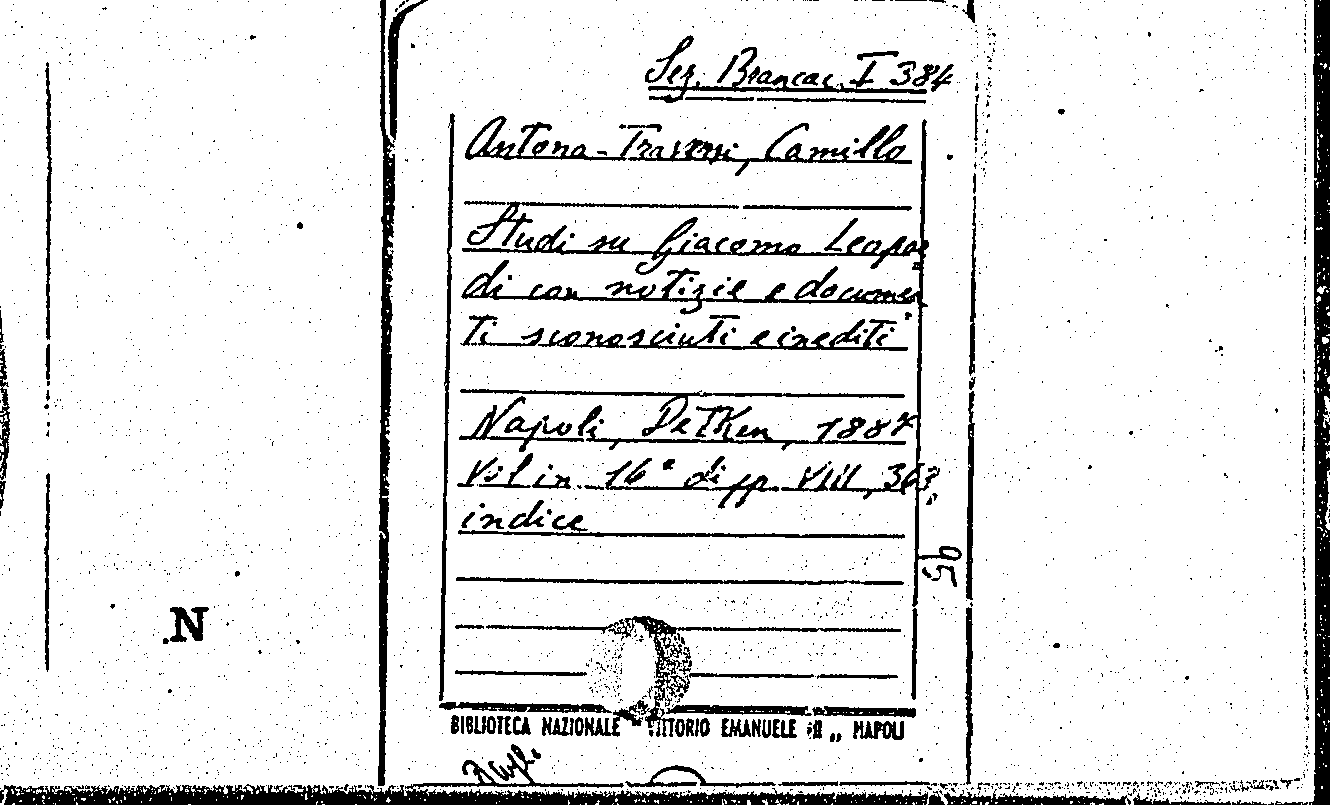 Sez. Brancac. I 384
Antona-Traversi, Camillo
Studi su Giacomo Leopar=
di con notizie e documen
ti sconosciuti e inediti
Napoli, Detken, 1887
Vol in 16° di pp. VIII, 363,
indice
95
N
BIBLIOTECA NAZIONALE " VITTORIO EMANUELE III „ NAPOLI